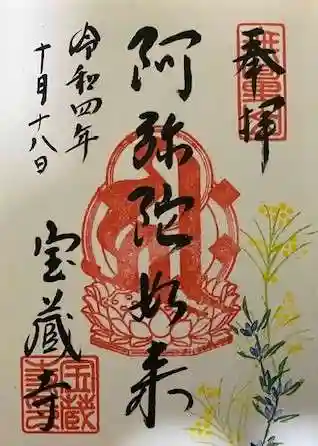 奉拝
阿弥陀如来
令和四年
十月十八日
宝蔵寺